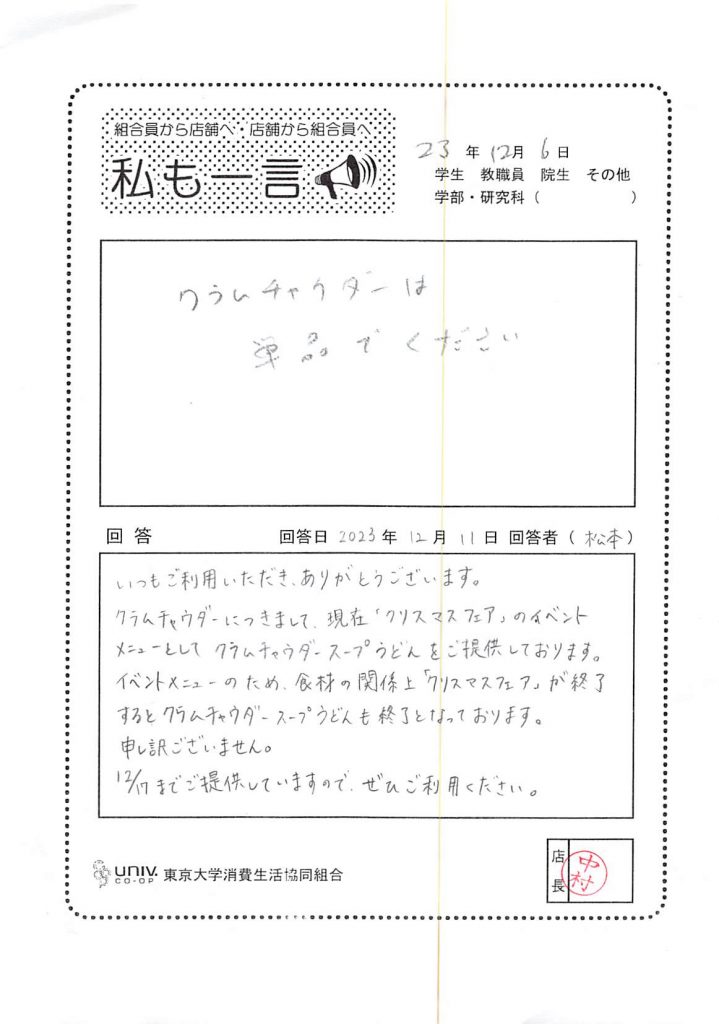 組合員から店舗へ・店舗から組合員へ
私も一言
23年12月6日
学生 教職員 院生 その他
学部・研究科（ ）
クラムチャウダーは
単品でください
回答 回答日2023年12月11日回答者（松本）
いつもご利用いただき、ありがとうございます。
クラムチャウダーにつきまして、現在「クリスマスフェア」のイベント
メニューとしてクラムチャウダースープうどんをご提供しております。
イベントメニューのため、食材の関係上「クリスマスフェア」が終了
するとクラムチャウダースープうどんも終了となっております。
申し訳ございません。
12/17までご提供していますので、ぜひご利用ください。
UNIV. CO-OP 東京大学消費生活協同組合
店長 中村